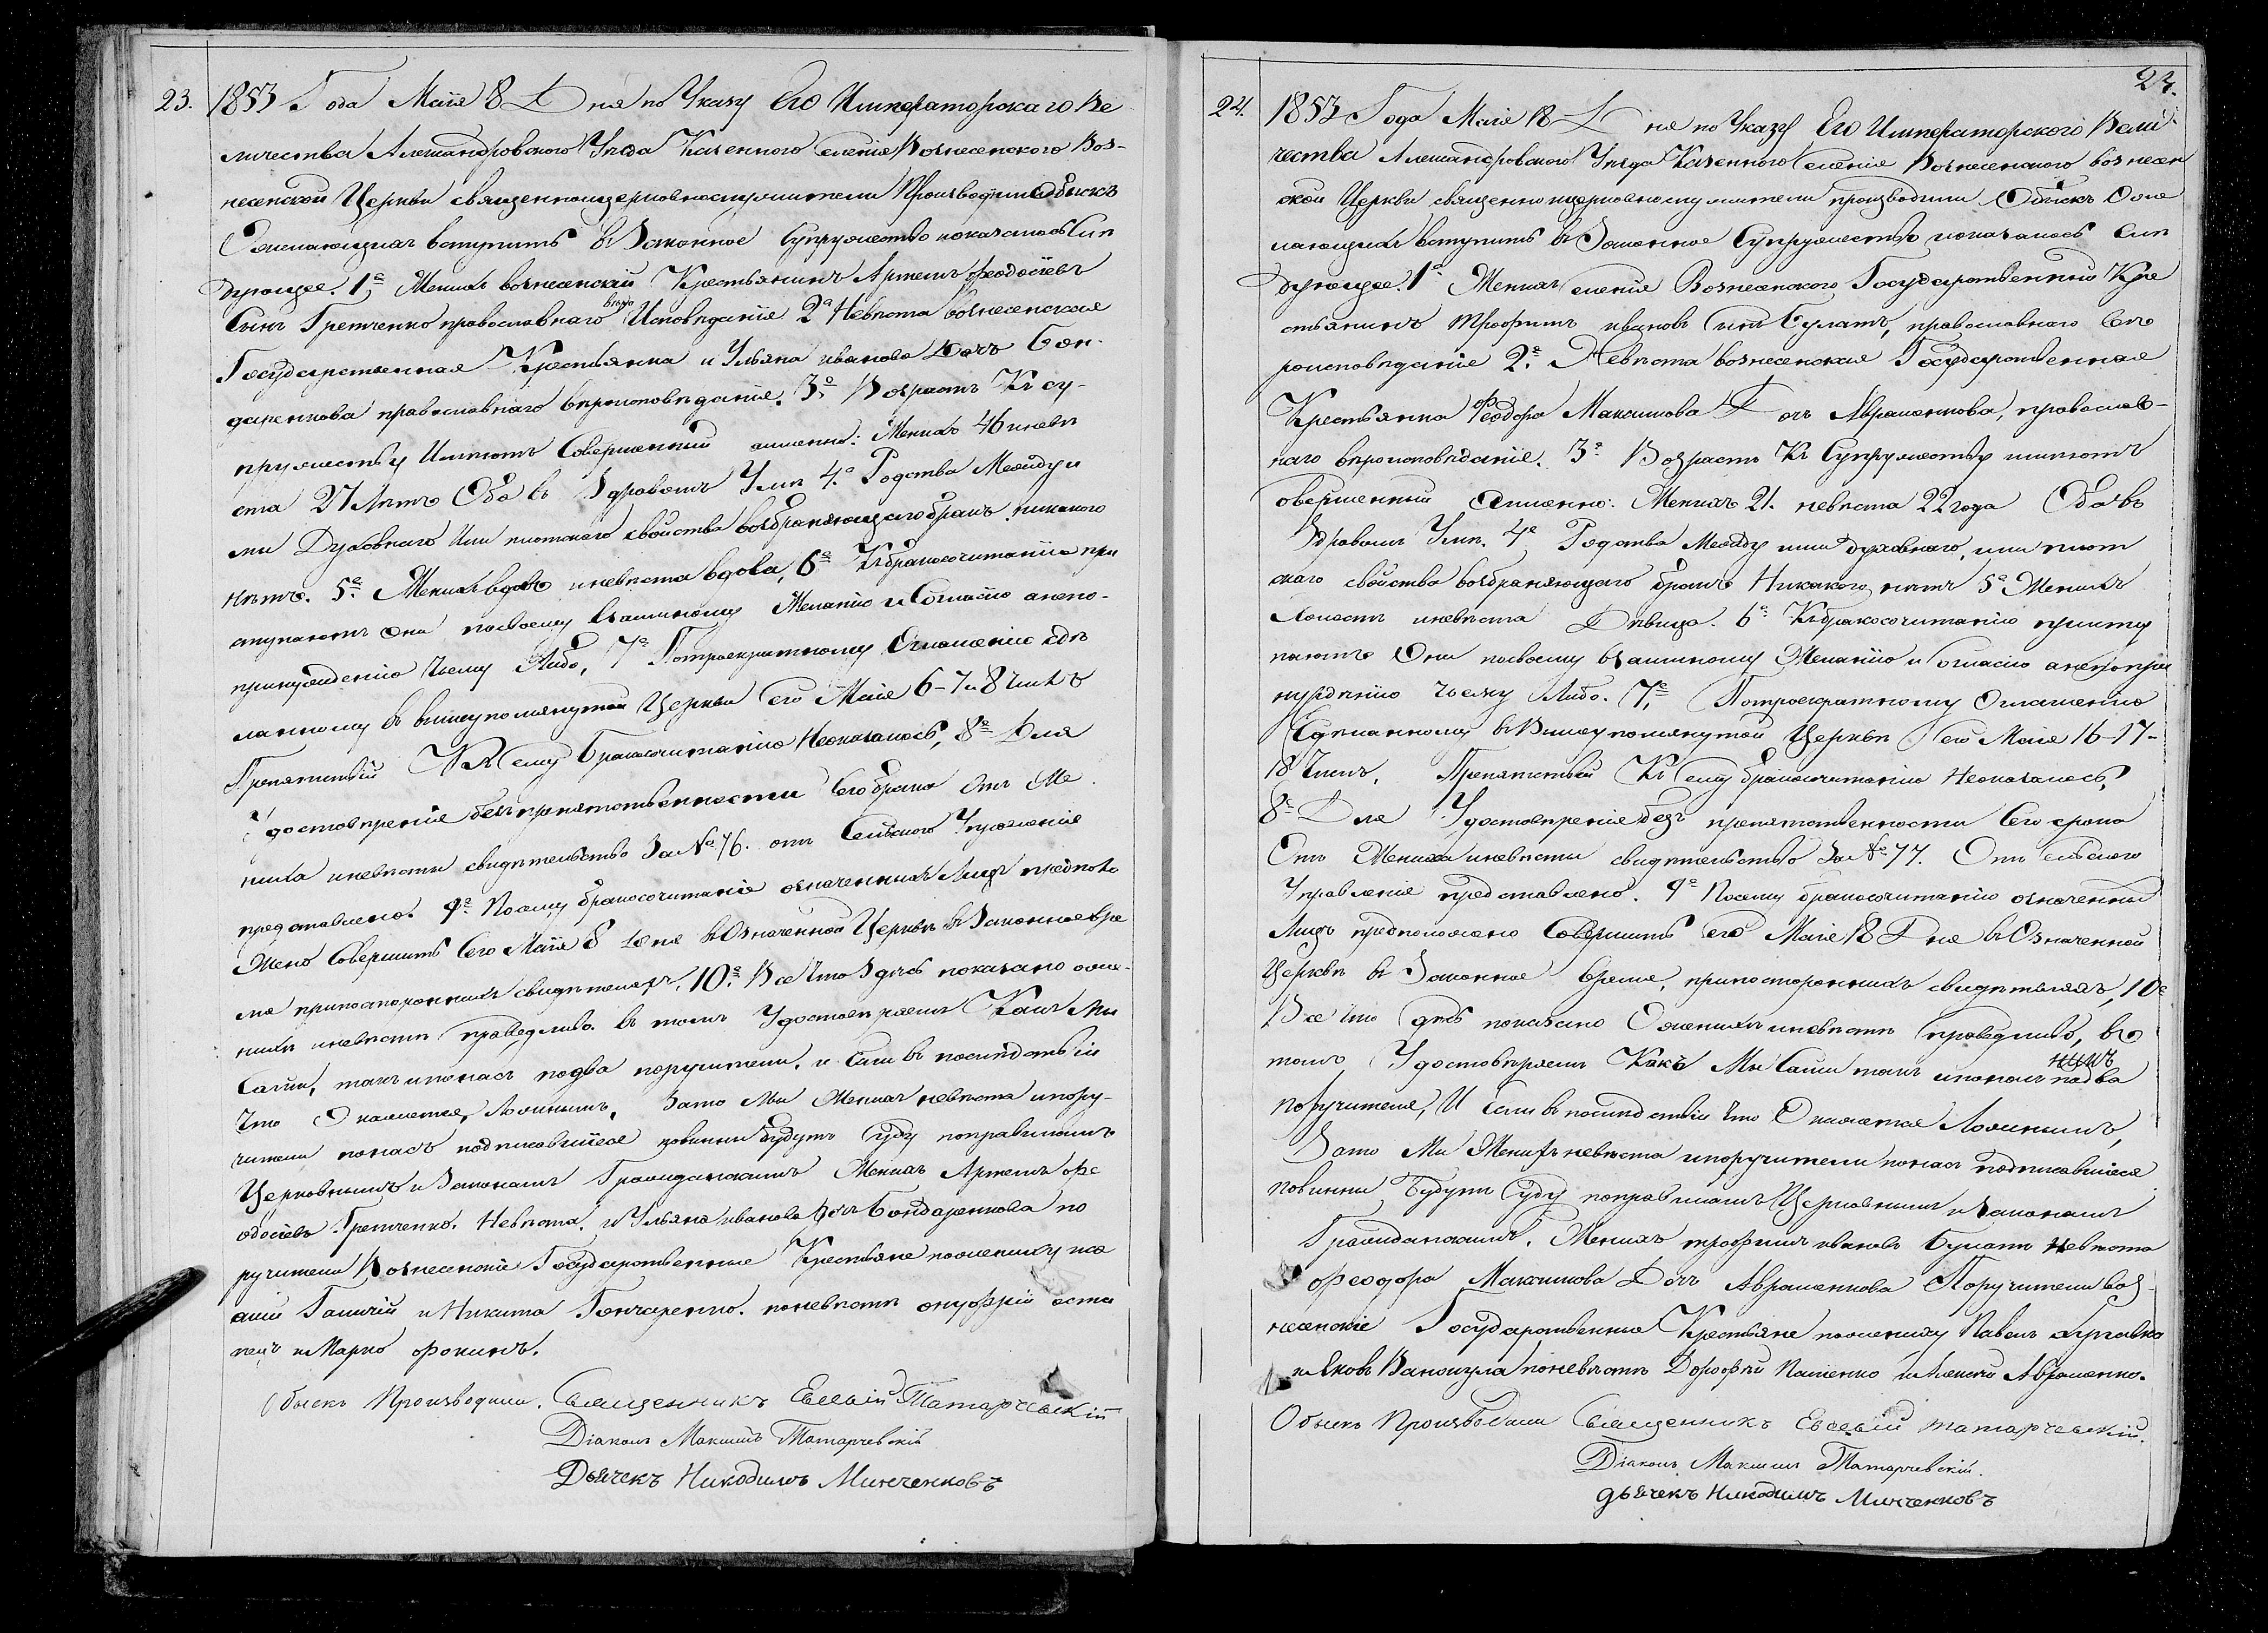 23. 1853 Года Маія 8 Дня по Указу Его Императорскаго Ве
личества Александровского Уѣзда Казенного Селенія Вознесенского Воз-
несенской Церкви священноицерковнослужители Производили Обыскъ
Ожелающихъ вступить въ Законное Супружество показалось Слѣ
дующее. 1е Женихъ вознесенскій Крестьянинъ Артемъ феодосіевъ
Сынъ Гретченко православнаго Вѣро Исповѣданія 2а Невѣста вознесенская
Государственная Крестьянка и Ульяна иванова Дочь Бон-
даренкова православнаго вѣроисповѣданія. 3е Возрастъ Къ су-
пружеству Имѣютъ Совершенный аименно: Женихъ 46 иневѣ
ста 27 Лѣтъ Оба въ Здравомъ Умѣ 4е Родства Между и
ми Духовнаго Или плотскаго свойства возбраняющаго бракъ никакого
нѣтъ. 5е Женихъ вдовъ иневѣста вдова, 6е Къ бракосочитанію при
ступаютъ Они посвоему взаимному Желанію и Согласію анепо-
принужденію чьему Либо, 7е Потроекратному Оглашенію здѣ
ланному въ вышеупомянутой Церкви Сего Маія 6-7 и 8 чиселъ
Препятствій Къ Сему бракосочитанію Неоказалось, 8е Для
Удостовѣренія безъпрепятственности Сего брака Отъ Же
ниха иневѣсты свидѣтельство За №76. отъ Сельского Управленія
представлено. 9е Посему бракосочитаніе означенныхъ Лицъ предполо
жено Совершить Сего Маія 8 дня въ Означенной Церквѣ въ Законное вре
мя припостороннихъ свидѣтеляхъ. 10е Все Что Здѣсь показано оже-
нихѣ иневѣстѣ Праведливо въ томъ Удостовѣряемъ Какъ Мы
Сами, такъ ипонасъ подва поручители, и Если въ послѣдствіи
Что Окажется Ложнымъ, Зато Мы Женихъ невѣста ипору-
чители понасъ подписавшіеся повинны будутъ Суду поправиламъ
Церковнымъ и Законамъ Гражданскимъ Женихъ Артемъ фе
одосіевъ Гретченко. Невѣста, и Ульяна иванова Дочь Бондаренкова по
ручители Вознесенскіе Государственные Крестьяне поженихѣ
и Никита Гончаренко. поневѣстѣ онуфрій оста
пецъ и Марко фокинъ.
Обыскъ Производили. Священникъ Евсевій Татарчевскій
Діаконъ Максимъ Татарчевскій
Дьячекъ Никодимъ Минченковъ
24.
24. 1853 Года Маія 18 Дня по Указу Его Императорского Вели-
чества Александровского Уѣзда Казенного Селенія Вознесенского вознесен
ской Церкви священно ицерковнослужители производили Обыскъ Оже
лающихъ вступить въ Законное Супружество показалось Слѣ
дующее. 1е Женихъ селенія Вознесенского Государственный Кре
стьянинъ трофимъ ивановъ сынъ Булатъ, православнаго Вѣ
роисповѣданія 2е. Невѣста вознесенская Государственная
Крестьянка Феодора Максимова Дочь Авраменкова, православ-
наго вѣроисповѣданія. 3е Возрастъ Къ Супружеству имѣютъ
овершенный Аименно: Женихъ 21. невѣста 22 года Оба въ
Здравомъ Умѣ. 4е Родства Между ими духовнаго, или плот
скаго свойства возбраняющаго бракъ Никакого нѣтъ 5е Женихъ
Холостъ иневѣста Дѣвица. 6е Къ бракосочитанію присту
паютъ Они посвоему взаимному Желанію и Согласію анепопри
нужденію чьему Либо. 7е Потроекратному Оглашенію
Сдѣланному въ Вышеупомянутой Церквѣ Сего Маія 16-17-
18 Чиселъ, Препятствій Къ Сему бракосочитанію Неоказалось,
8е Для Удостовѣренія безъ препятственности Сего брака
Отъ Жениха иневѣсты свидѣтельство За №77. Отъ сельского
Управленія представлено. 9е Посему бракосочитаніе означенныхъ
Лицъ предположено Совершить Сего Маія 18 Дня въ Означенной
Церквѣ въ Законное Время, припостороннихъ свидѣтеляхъ, 10е
Все что Здѣсь показано Оженихѣ иневѣстѣ Праведливо, въ
томъ Удостовѣряемъ Какъ Мы Сами такъ ипонасъ подва
поручителя, И Если въ послѣдствіи Что Окажется Ложнымъ,
Зато Мы Женихъ невѣста ипоручители понасъ подписавшіеся
повинны Будутъ Суду поправиламъ Церковнымъ и Законамъ
Гражданскимъ. Женихъ трофимъ ивановъ Булатъ Невѣста
феодора Максимова Дочь Авраменкова Поручители воз-
несенскіе Государственные Крестьяне поженихѣ Павелъ
и Яковъ поневѣстѣ Дорофѣй Пащенко и Алексѣй Авраменко.
Обыскъ Производили Священникъ Евсевій татарчевскій.
Діаконъ Максимъ Татарчевскій.
дьячекъ Никодимъ Минченковъ